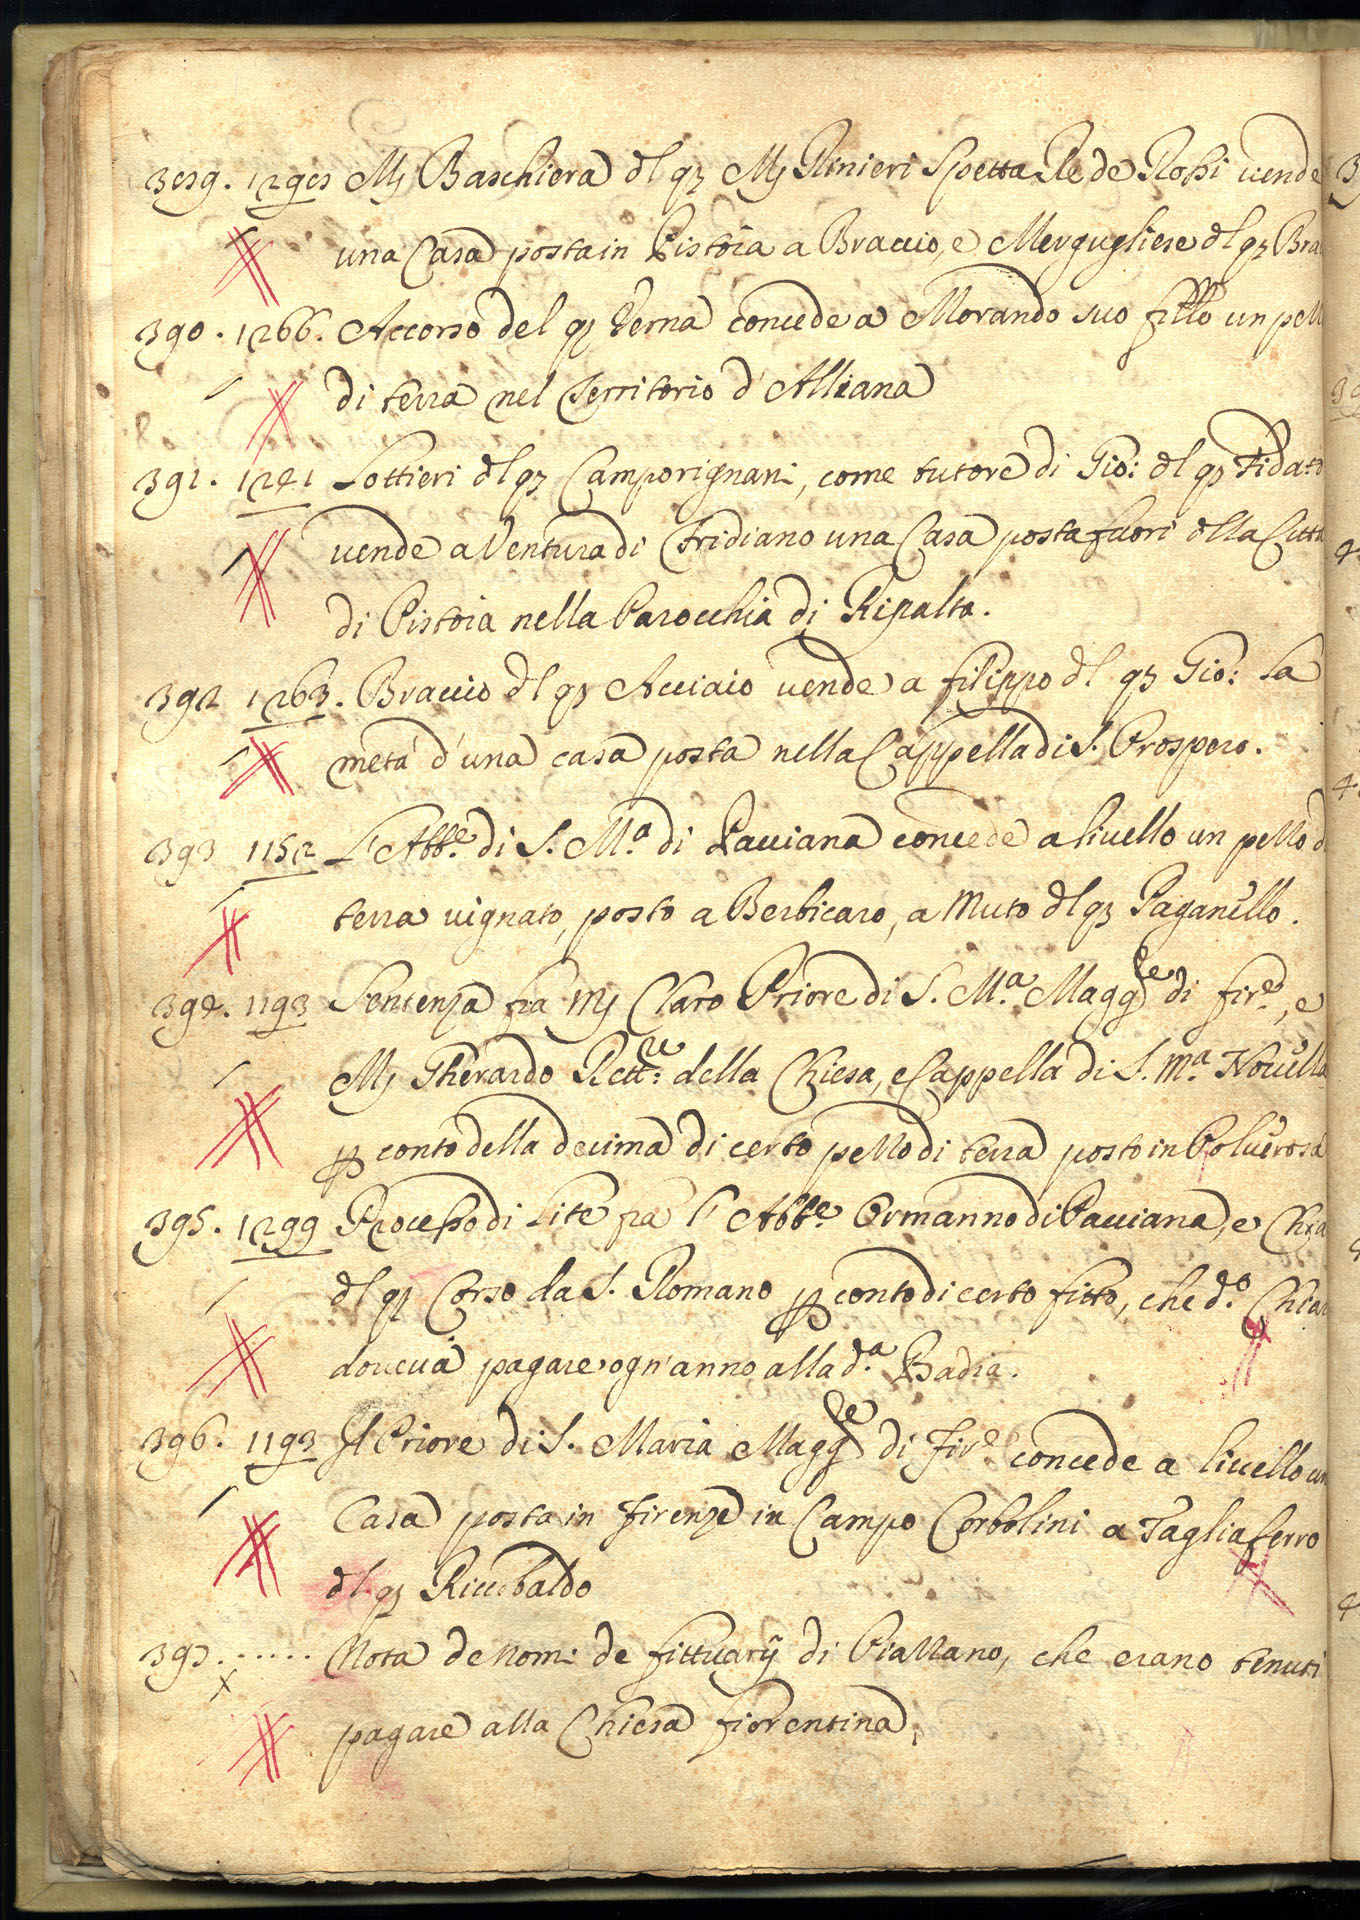 389. 1298 Mʒ Baschiera dl qʒ Mʒ Rinieri Spetta Re de Rossi vende
una Casa posta in Pistoia a Braccio, e Mergugliese dl qʒ Bra
390. 1266. Accorso del qʒ Verna concede a Morando suo fillo un pezzo
di terra nel Territorio d'Alliana
391. 1241 Lottieri dl qʒ Camporignani, come tutore di Gio: dl qʒ Fidato
vende a Ventura di Fridiano una Casa posta fuori dlla Citta
di Pistoia nella Parocchia di Ripalta.
392 1263. Braccio dl qʒ Acciaio vende a Filippo dl qʒ Gio: la
metà d'una casa posta nella Cappella di S. Prospero.
393 1152 L'Abb.e di S. M.a di Pacciana concede a livello un pezzo d
terra vignato, posto a Berbicaro, a Muto dl qʒ Paganello.
394. 1193 Sentenza fra Mʒ Claro Priore di S. M.a Magg.re di Fir.e, e
Mʒ Gherardo Rett.re della Chiesa, e Cappella di S. M.a Novella
p conto della decima di certo pezzo di terra posto in Polverosa
395. 1299 Processo di Lite fra l'Abb.e Ormanno di Pacciana, e Chia
dl qʒ Corso da S. Romano p conto di certo fitto, che d.o Chia
doveva pagare ogn'anno alla d.a Badia.
396. 1193 Il Priore di S. Maria Magg.re di Fir.e concede a livello un
Casa posta in Firenze in Campo Corbolini a Tagliaferro
dl qʒ Riccobaldo
397. ...... Nota de nomi de fittuarij di Piazzano, che erano tenuti
pagare alla Chiesa fiorentina.